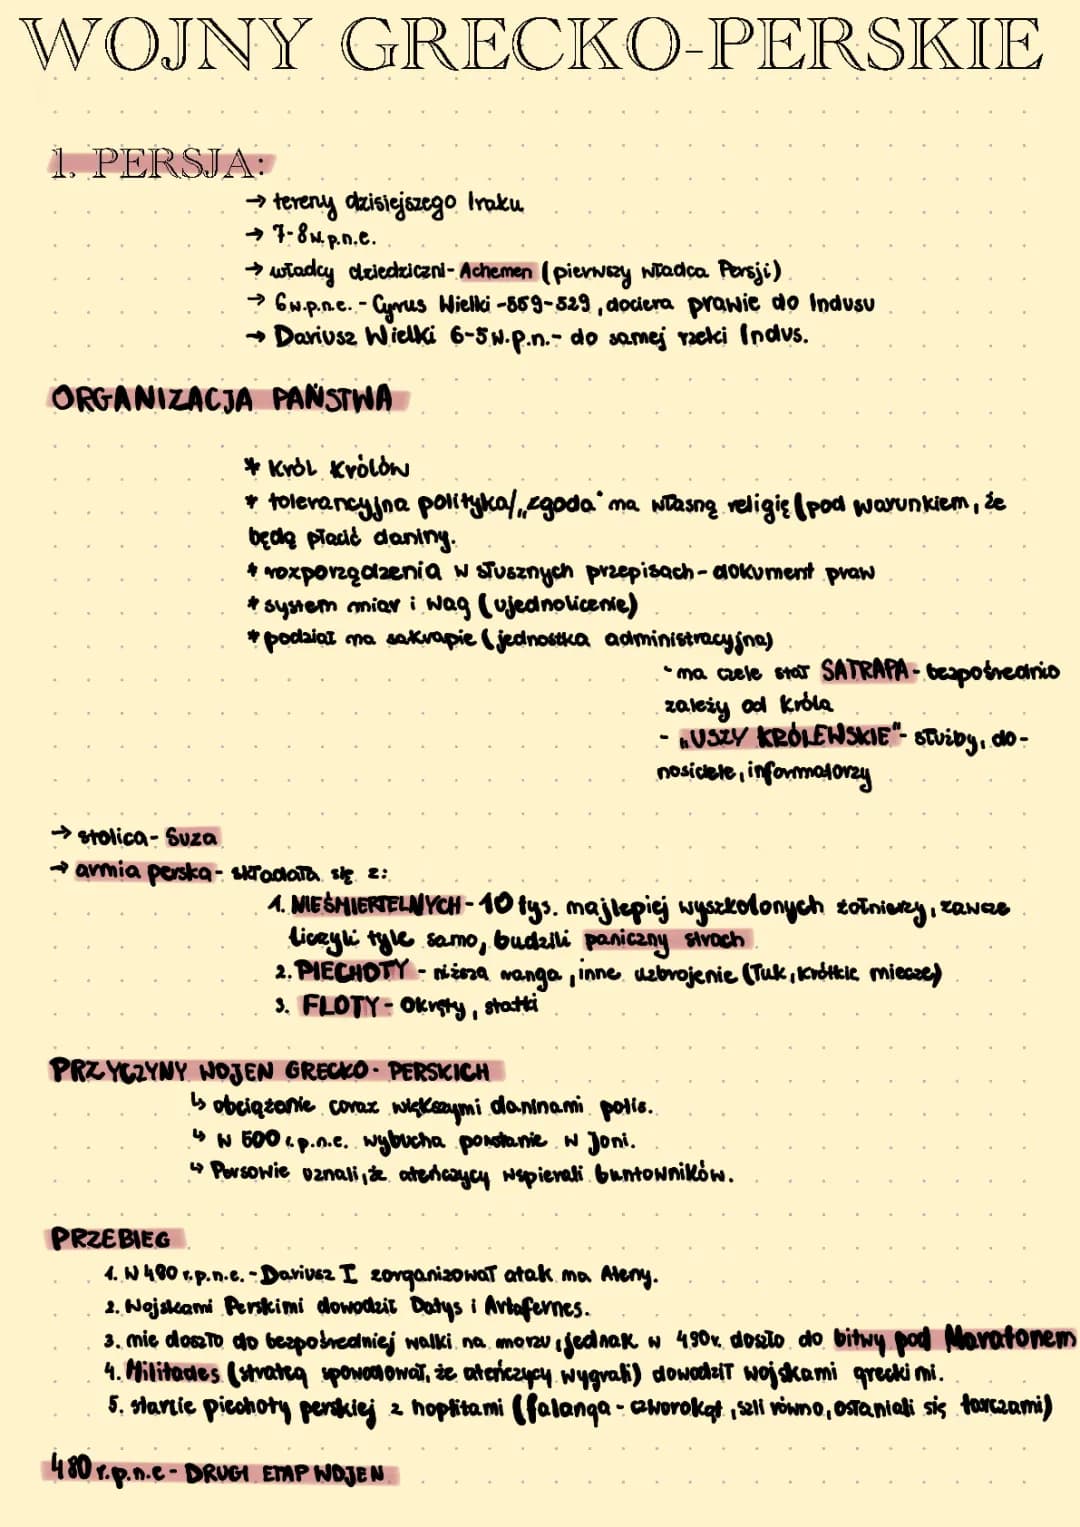 WOJNY GRECKO-PERSKIE
1. PERSJA:
→ tereny dzisiejszego Iraku
→ 7-8w.p.n.e.
→ władcy dziedziczni- Achemen (pierwszy władca Persji)
→ 6w.p.n.e. - Cyrus Wielki -559-529, dociera prawie do Indusu
→ Dariusz Wielki 6-5w.p.n.- do samej rzeki Indus.
ORGANIZACJA PAŃSTWA
* Król Królów
* tolerancyjna polityka/„zgoda" na własną religię (pod warunkiem, że
będą płacić daniny.
* rozporządzenia w słusznych przepisach- dokument praw
* system miar i wag (ujednolicenie)
* podział na sakrapie (jednostka administracyjna)
- na czele stał SATRAPA- bezpośrednio
zależy od króla
- „USZY KRÓLEWSKIE"- służby, do-
nosiciele, informatorzy
→ stolica- Suza
→ armia perska- składała się z:
1. NIEŚMIERTELNYCH- 10 tys. najlepiej wyszkolonych żołnierzy, zawsze
liczyli tyle samo, budzili paniczny strach
2. PIECHOTY - niższa ranga, inne uzbrojenie (łuk, krótkie miecze)
3. FLOTY- Okręty, statki
PRZYCZYNY WOJEN GRECKO- PERSKICH
↳ obciążenie coraz większymi daninami polis.
↳ W 500 r.p.n.e. wybucha powstanie w Joni.
↳ Persowie uznali, że ateńczycy wspierali buntowników.
PRZEBIEG
1. W 490 r.p.n.e. - Dariusz I zorganizował atak na Ateny.
2. Wojskami Perskimi dowodził Datys i Artafernes.
3. nie doszło do bezpośredniej walki na morzu, jednak w 490r. doszło do bitwy pod Maratonem
4. Militades (strateg spowodował, że ateńczycy wygrali) dowodził wojskami greckimi.
5. starcie piechoty perskiej z hoplitami (falanga - czworokąt, szli równo, osłaniali się tarczami)
480 r.p.n.e - DRUGI ETAP WOJEN